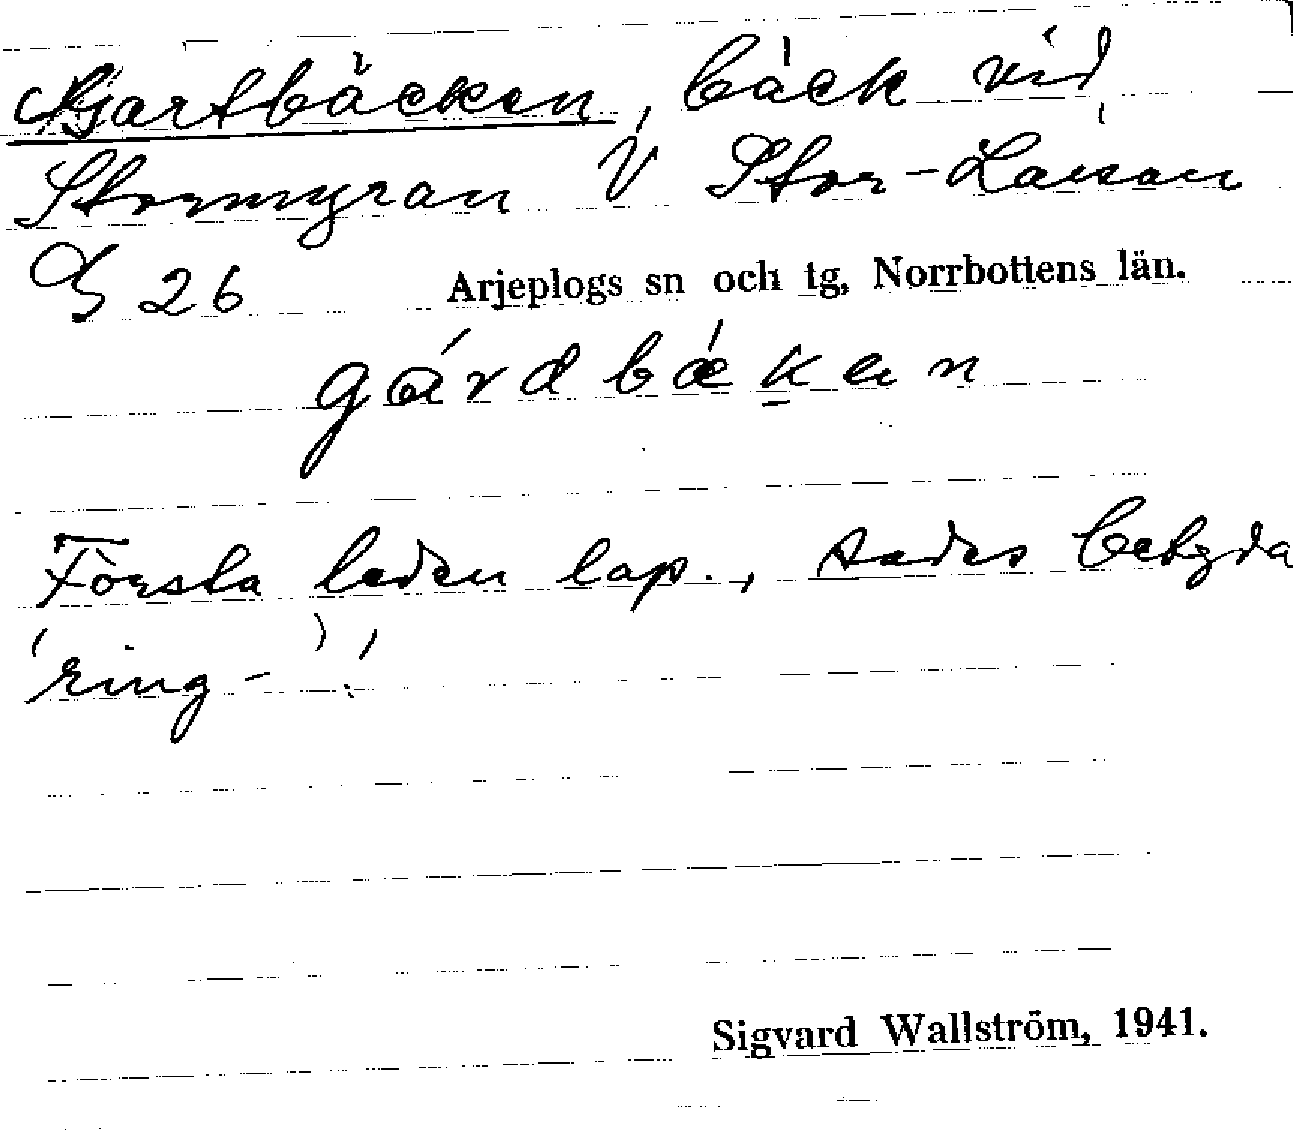 Kjartbäcken, bäck vid
Stormyran V Stor-Laisan
26 Arjeplogs sn och tg, Norrbottens län.
gárdbǽḵen
Första leden lap., sades betyda
'ring-)'!
Sigvard Wallström, 1941.